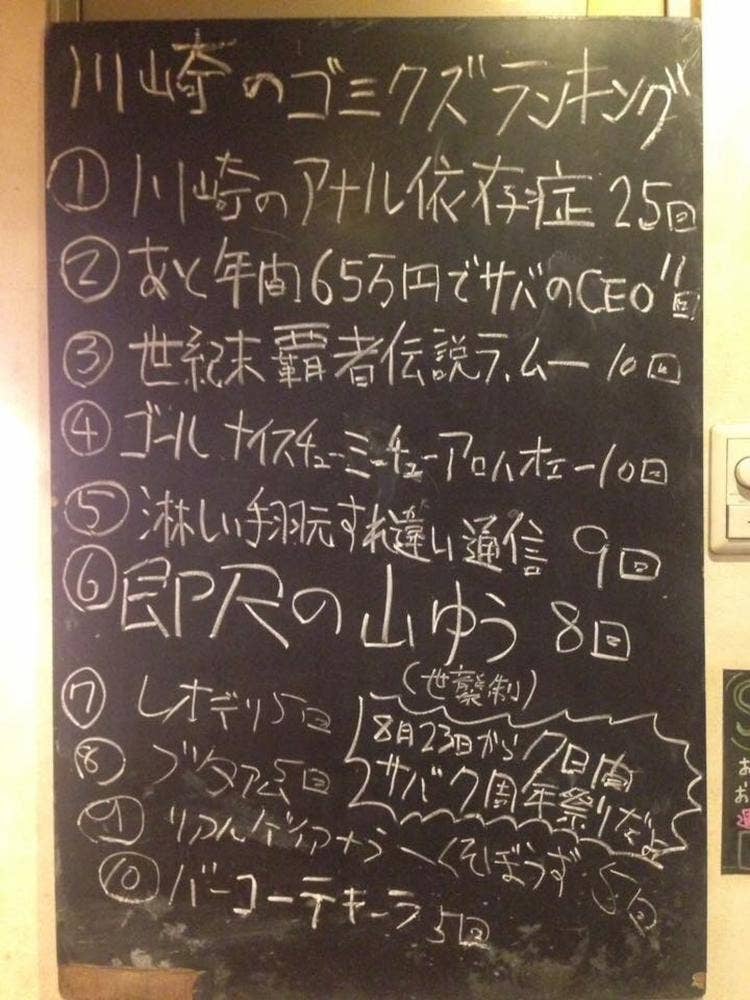 川崎のゴミクズランキング
① 川崎のアナル依存症 25回
② あと年間65万円でサバのCEO 11回
③ 世紀末覇者伝説ラ,ムー 10回
④ ゴール ナイスチューミーチューアロハオエー 10回
⑤ 淋しい手羽元すれ違い通信 9回
⑥ 即尺の山ゆう 8回
(世襲制)
⑦ レオデリ 5回
8月23日から7日間
サバ7周年祭りだよ
⑧ ブタ 5回
⑨ くそぼうず 5回
⑩ バーコーテキーラ 5回